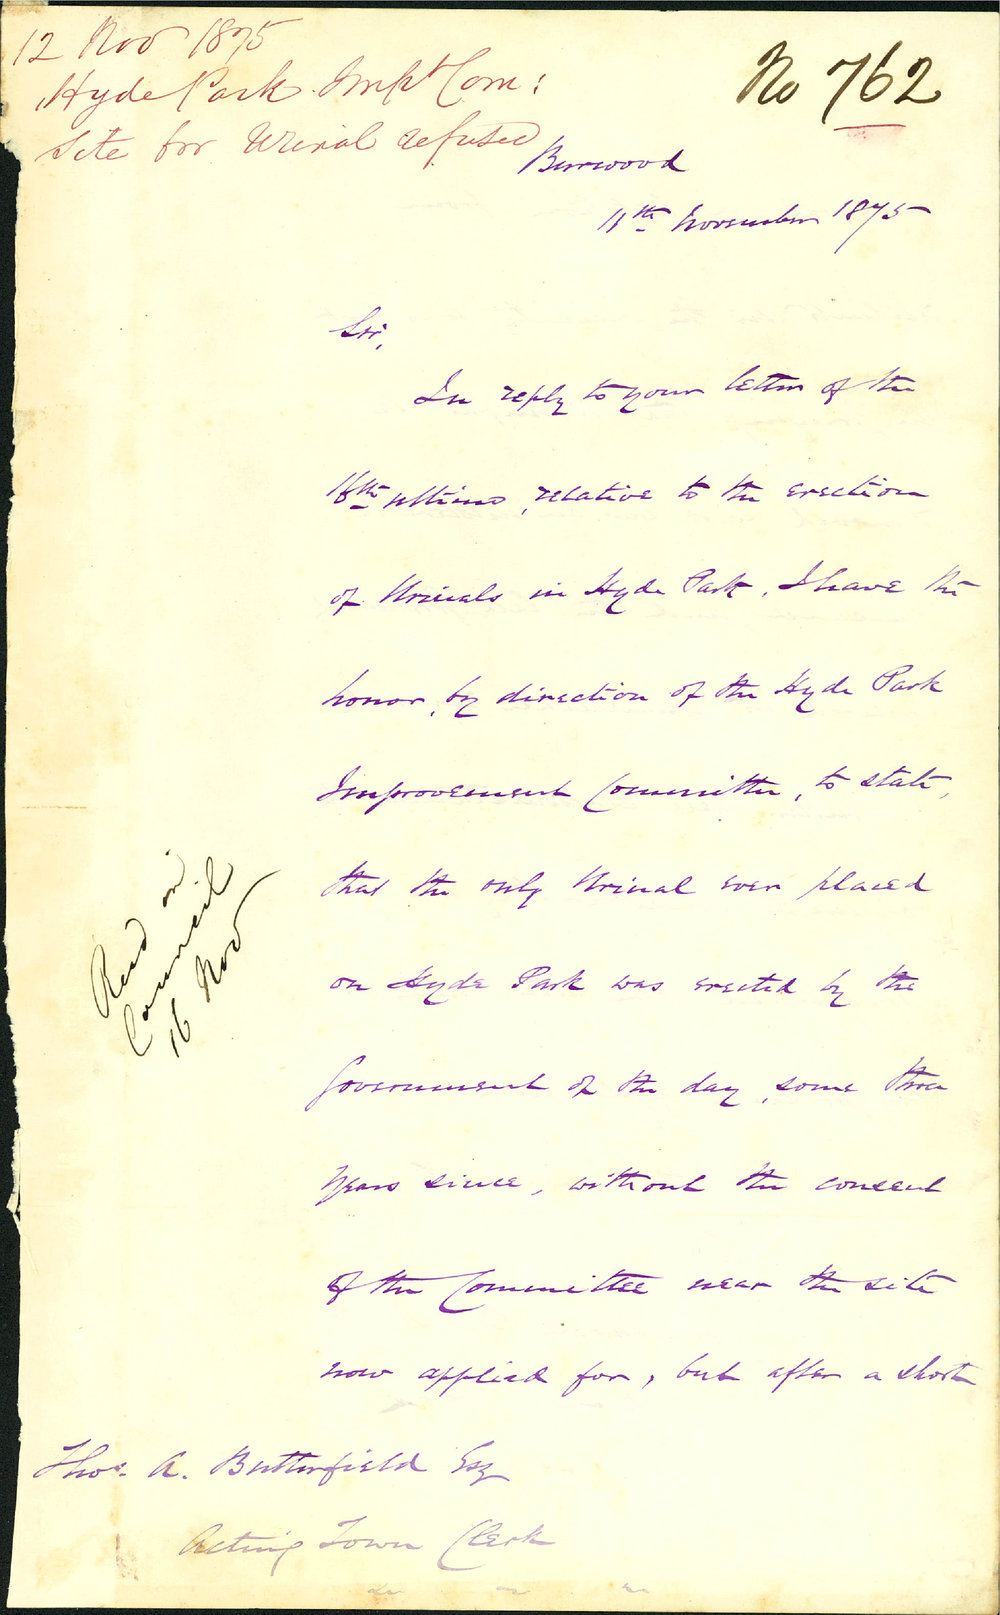 12 Nov 1875
Hyde Park Impt Com:
Site for Urinal refused
No 762
Burwood
11th November 1875
Sir,
In reply to your letter of the
16th ultimo, relative to the erection
of Urinals in Hyde Park, I have the
honor, by direction of the Hyde Park
Improvement Committee, to state,
that the only Urinal ever placed
on Hyde Park was erected by the
Government of the day, some three
years since, without the consent
of the Committee near the site
now applied for, but after a short
Read in
Council
16 Nov
Thos. A. Butterfield Esq
Acting Town Clerk